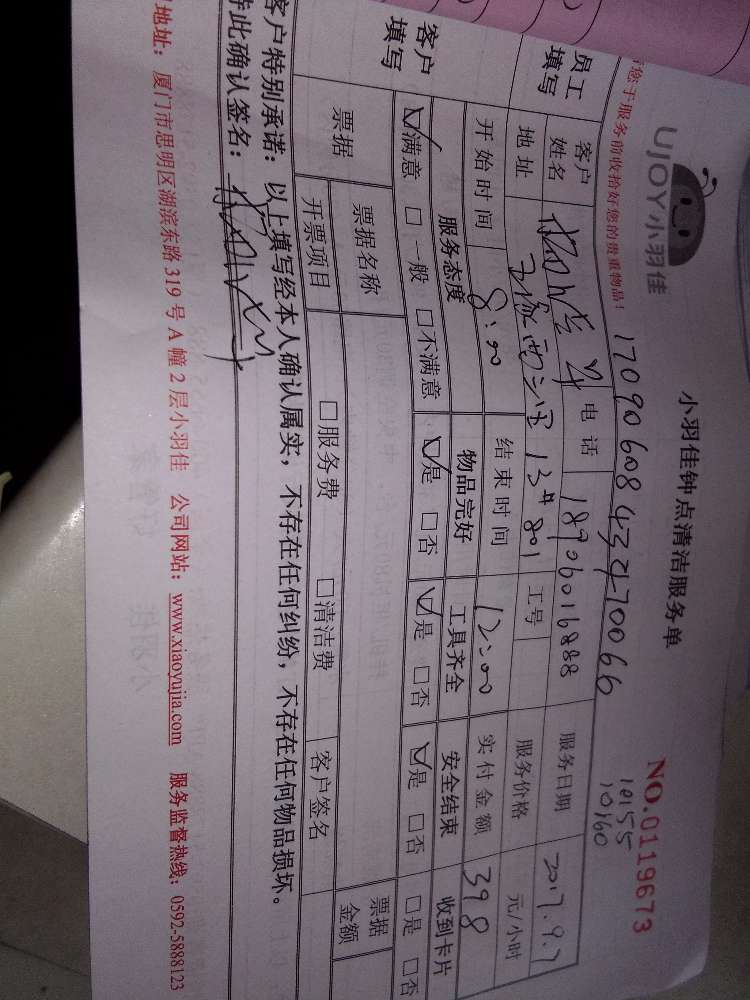 UJOY小羽佳
小羽佳钟点清洁服务单
NO.0119673
您于服务前收拾好您的贵重物品!
17090608432470066
10155
10160
员工填写
客户姓名 电话 18906016888 服务日期 2017.9.7
地址 13#801 工号 服务价格 元/小时
开始时间 8:00 结束时间 12:00 实付金额 398
客户填写
服务态度 物品完好 工具齐全 安全结束 收到卡片
☑满意 □一般 □不满意 ☑是 □否 ☑是 □否 ☑是 □否 □是 □否
票据 票据名称 票据金额
开票项目 □服务费 □清洁费 客户签名
客户特别承诺：以上填写经本人确认属实，不存在任何纠纷，不存在任何物品损坏。
特此确认签名：
地址：厦门市思明区湖滨东路319号A幢2层小羽佳 公司网站：www.xiaoyujia.com 服务监督热线：0592-5888123